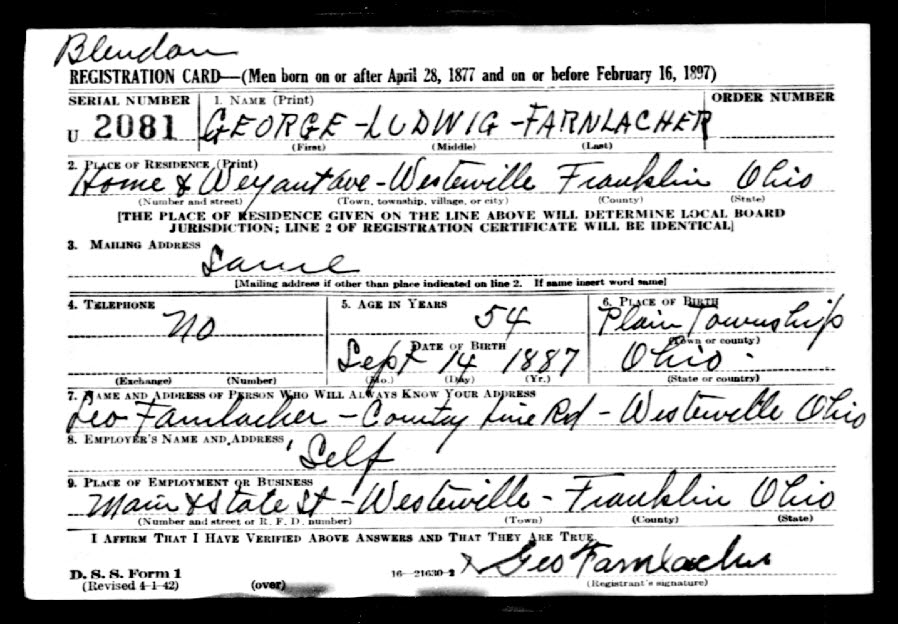 Blendon
REGISTRATION CARD—(Men born on or after April 28, 1877 and on or before February 16, 1897)
SERIAL NUMBER 1. NAME (Print) ORDER NUMBER
U 2081 GEORGE - LUDWIG - FARNLACHER
(First) (Middle) (Last)
2. PLACE OF RESIDENCE (Print)
Home & Weyant Ave - Westerville Franklin Ohio
(Number and street) (Town, township, village, or city) (County) (State)
[THE PLACE OF RESIDENCE GIVEN ON THE LINE ABOVE WILL DETERMINE LOCAL BOARD
JURISDICTION; LINE 2 OF REGISTRATION CERTIFICATE WILL BE IDENTICAL]
3. MAILING ADDRESS
Same
[Mailing address if other than place indicated on line 2. If same insert word same]
4. TELEPHONE 5. AGE IN YEARS 6. PLACE OF BIRTH
No 54 Plain Township
DATE OF BIRTH (Town or county)
Sept 14 1887 Ohio.
(Exchange) (Number) (Mo.) (Day) (Yr.) (State or country)
7. NAME AND ADDRESS OF PERSON WHO WILL ALWAYS KNOW YOUR ADDRESS
Leo Farnlacher - County Line Rd - Westerville Ohio
8. EMPLOYER'S NAME AND ADDRESS
Self
9. PLACE OF EMPLOYMENT OR BUSINESS
Main & State St - Westerville - Franklin Ohio
(Number and street or R. F. D. number) (Town) (County) (State)
I AFFIRM THAT I HAVE VERIFIED ABOVE ANSWERS AND THAT THEY ARE TRUE.
D. S. S. Form 1 16—21630-2 X Geo Farnlacher
(Revised 4-1-42) (over) (Registrant's signature)